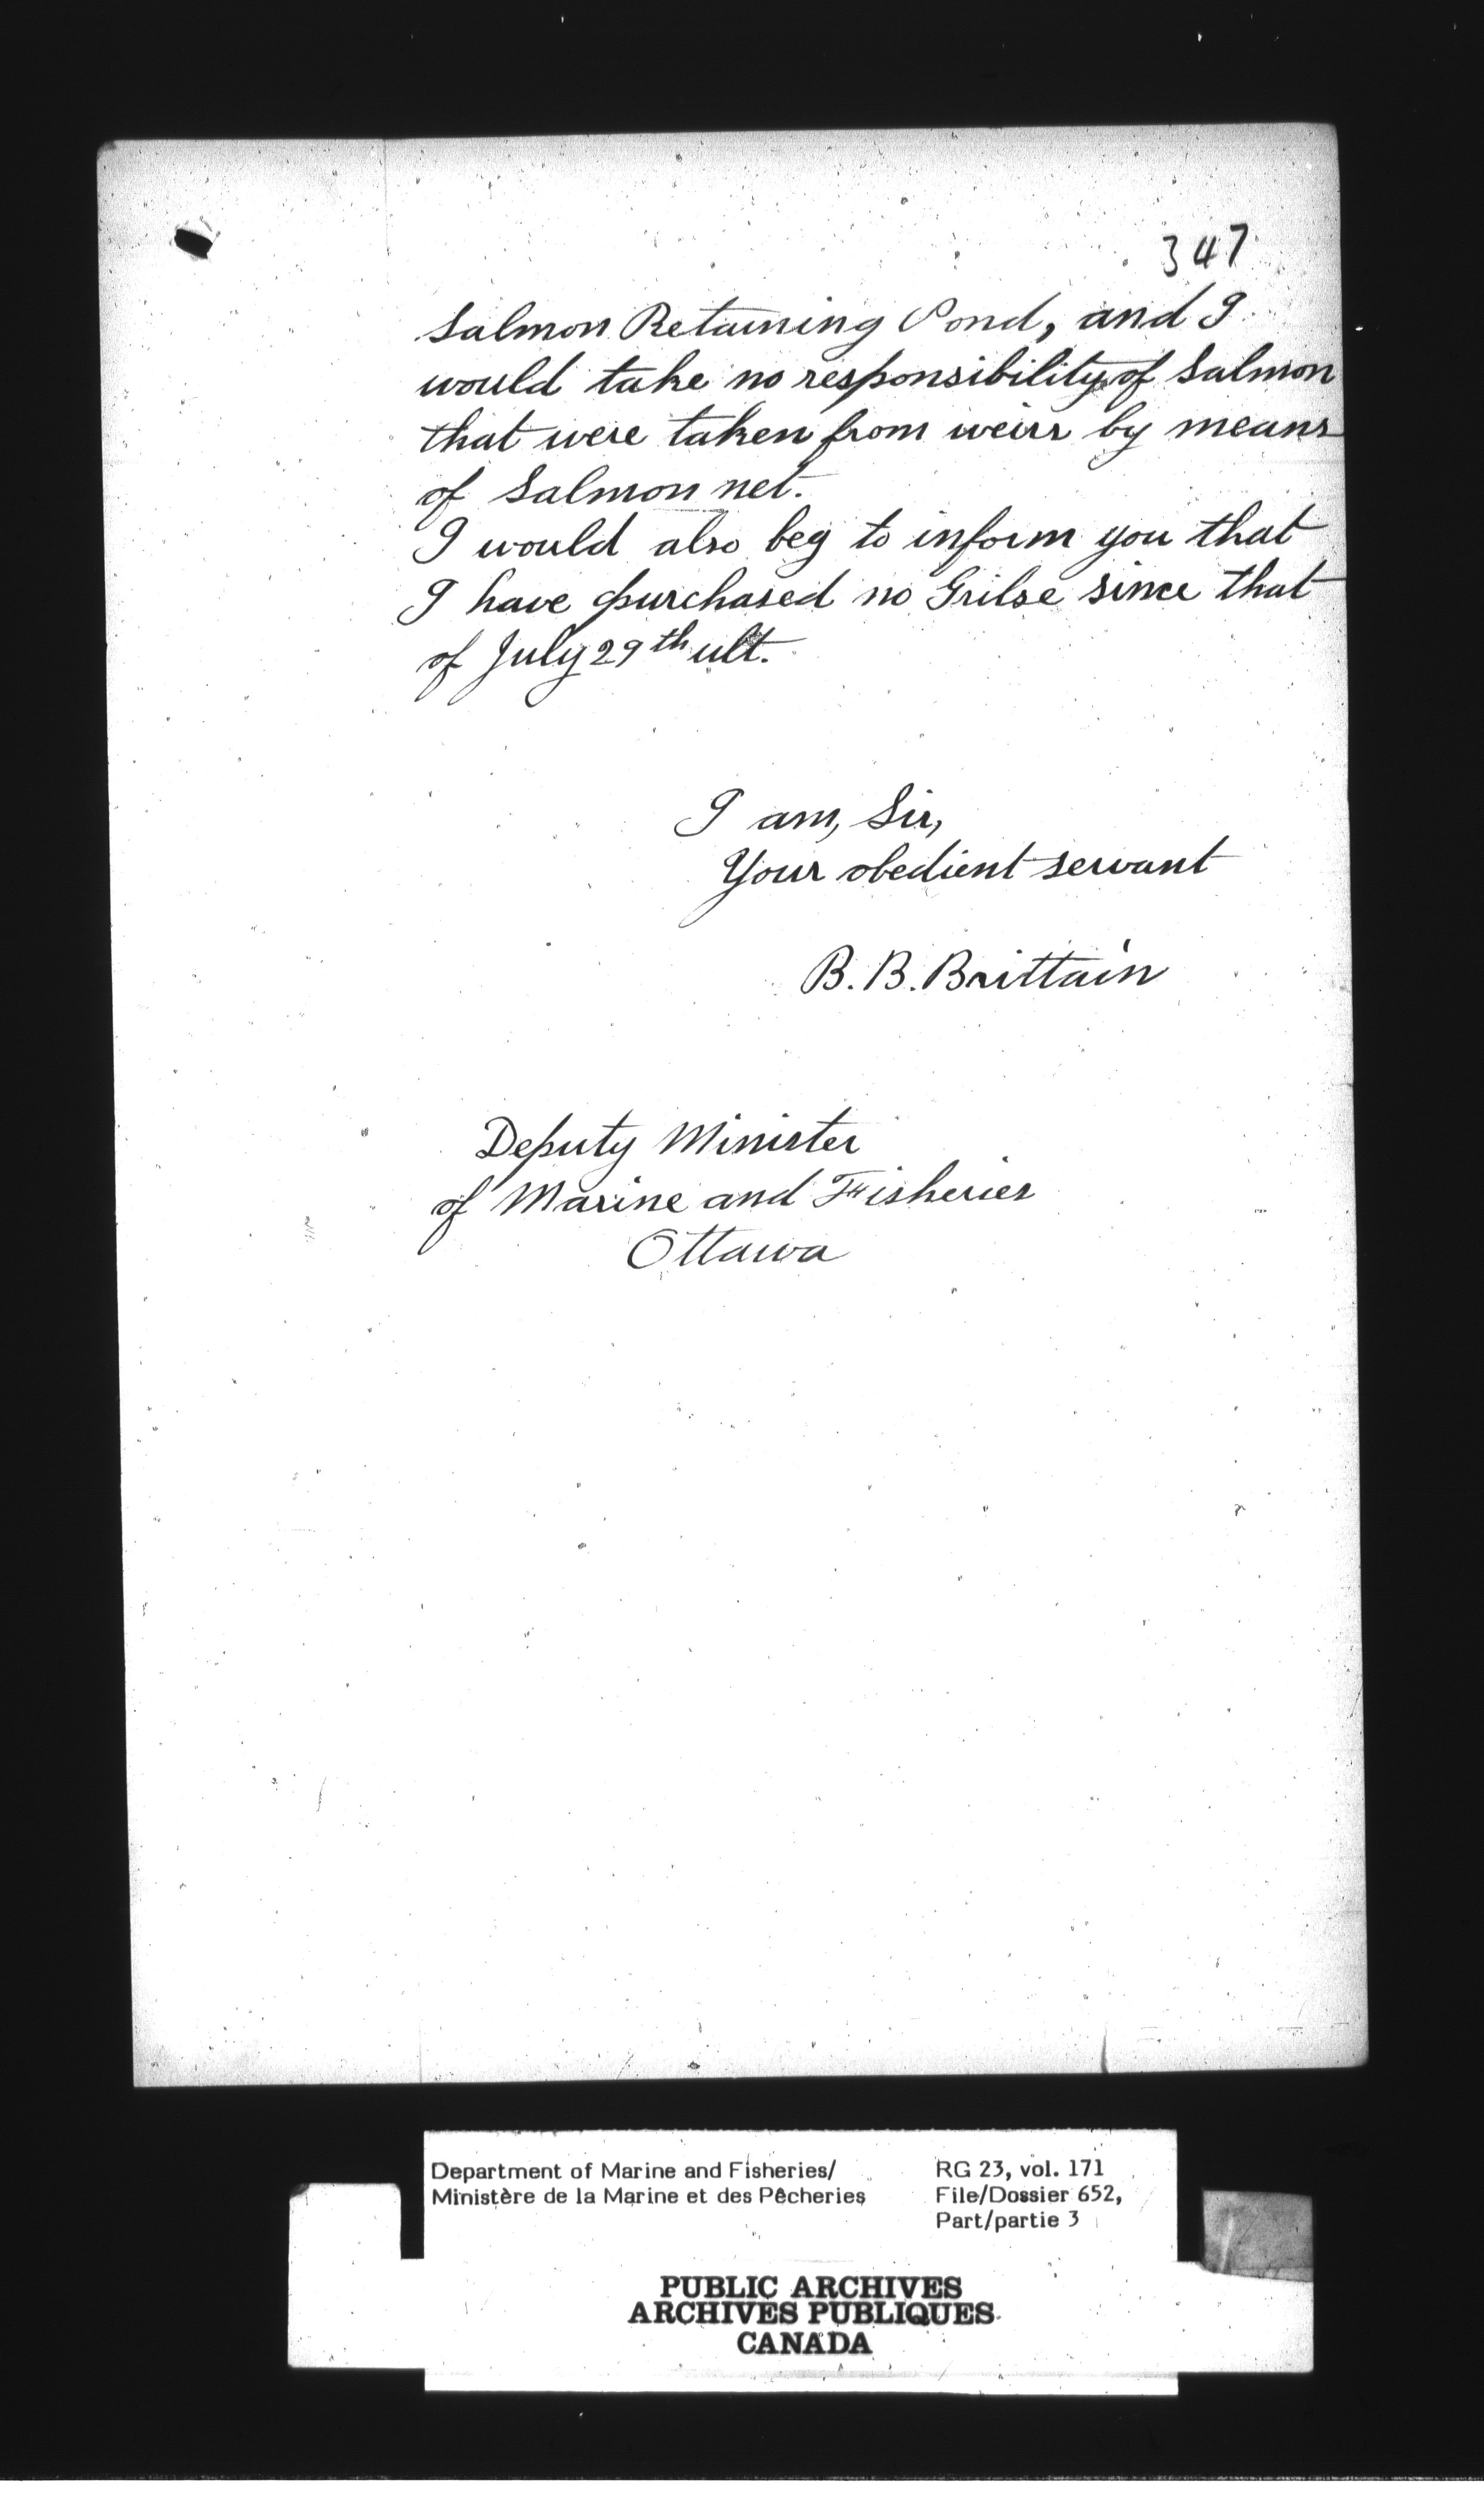 347
Salmon Retaining Pond, and I
would take no responsibility of Salmon
that were taken from weirs by means
of Salmon net.
I would also beg to inform you that
I have purchased no Grilse since that
of July 29th ult.
I am, Sir,
Your obedient servant
B. B. Brittain
Deputy Minister
of Marine and Fisheries
Ottawa
Department of Marine and Fisheries/
Ministère de la Marine et des Pêcheries
RG 23, vol. 171
File/Dossier 652,
Part/partie 3
PUBLIC ARCHIVES
ARCHIVES PUBLIQUES
CANADA